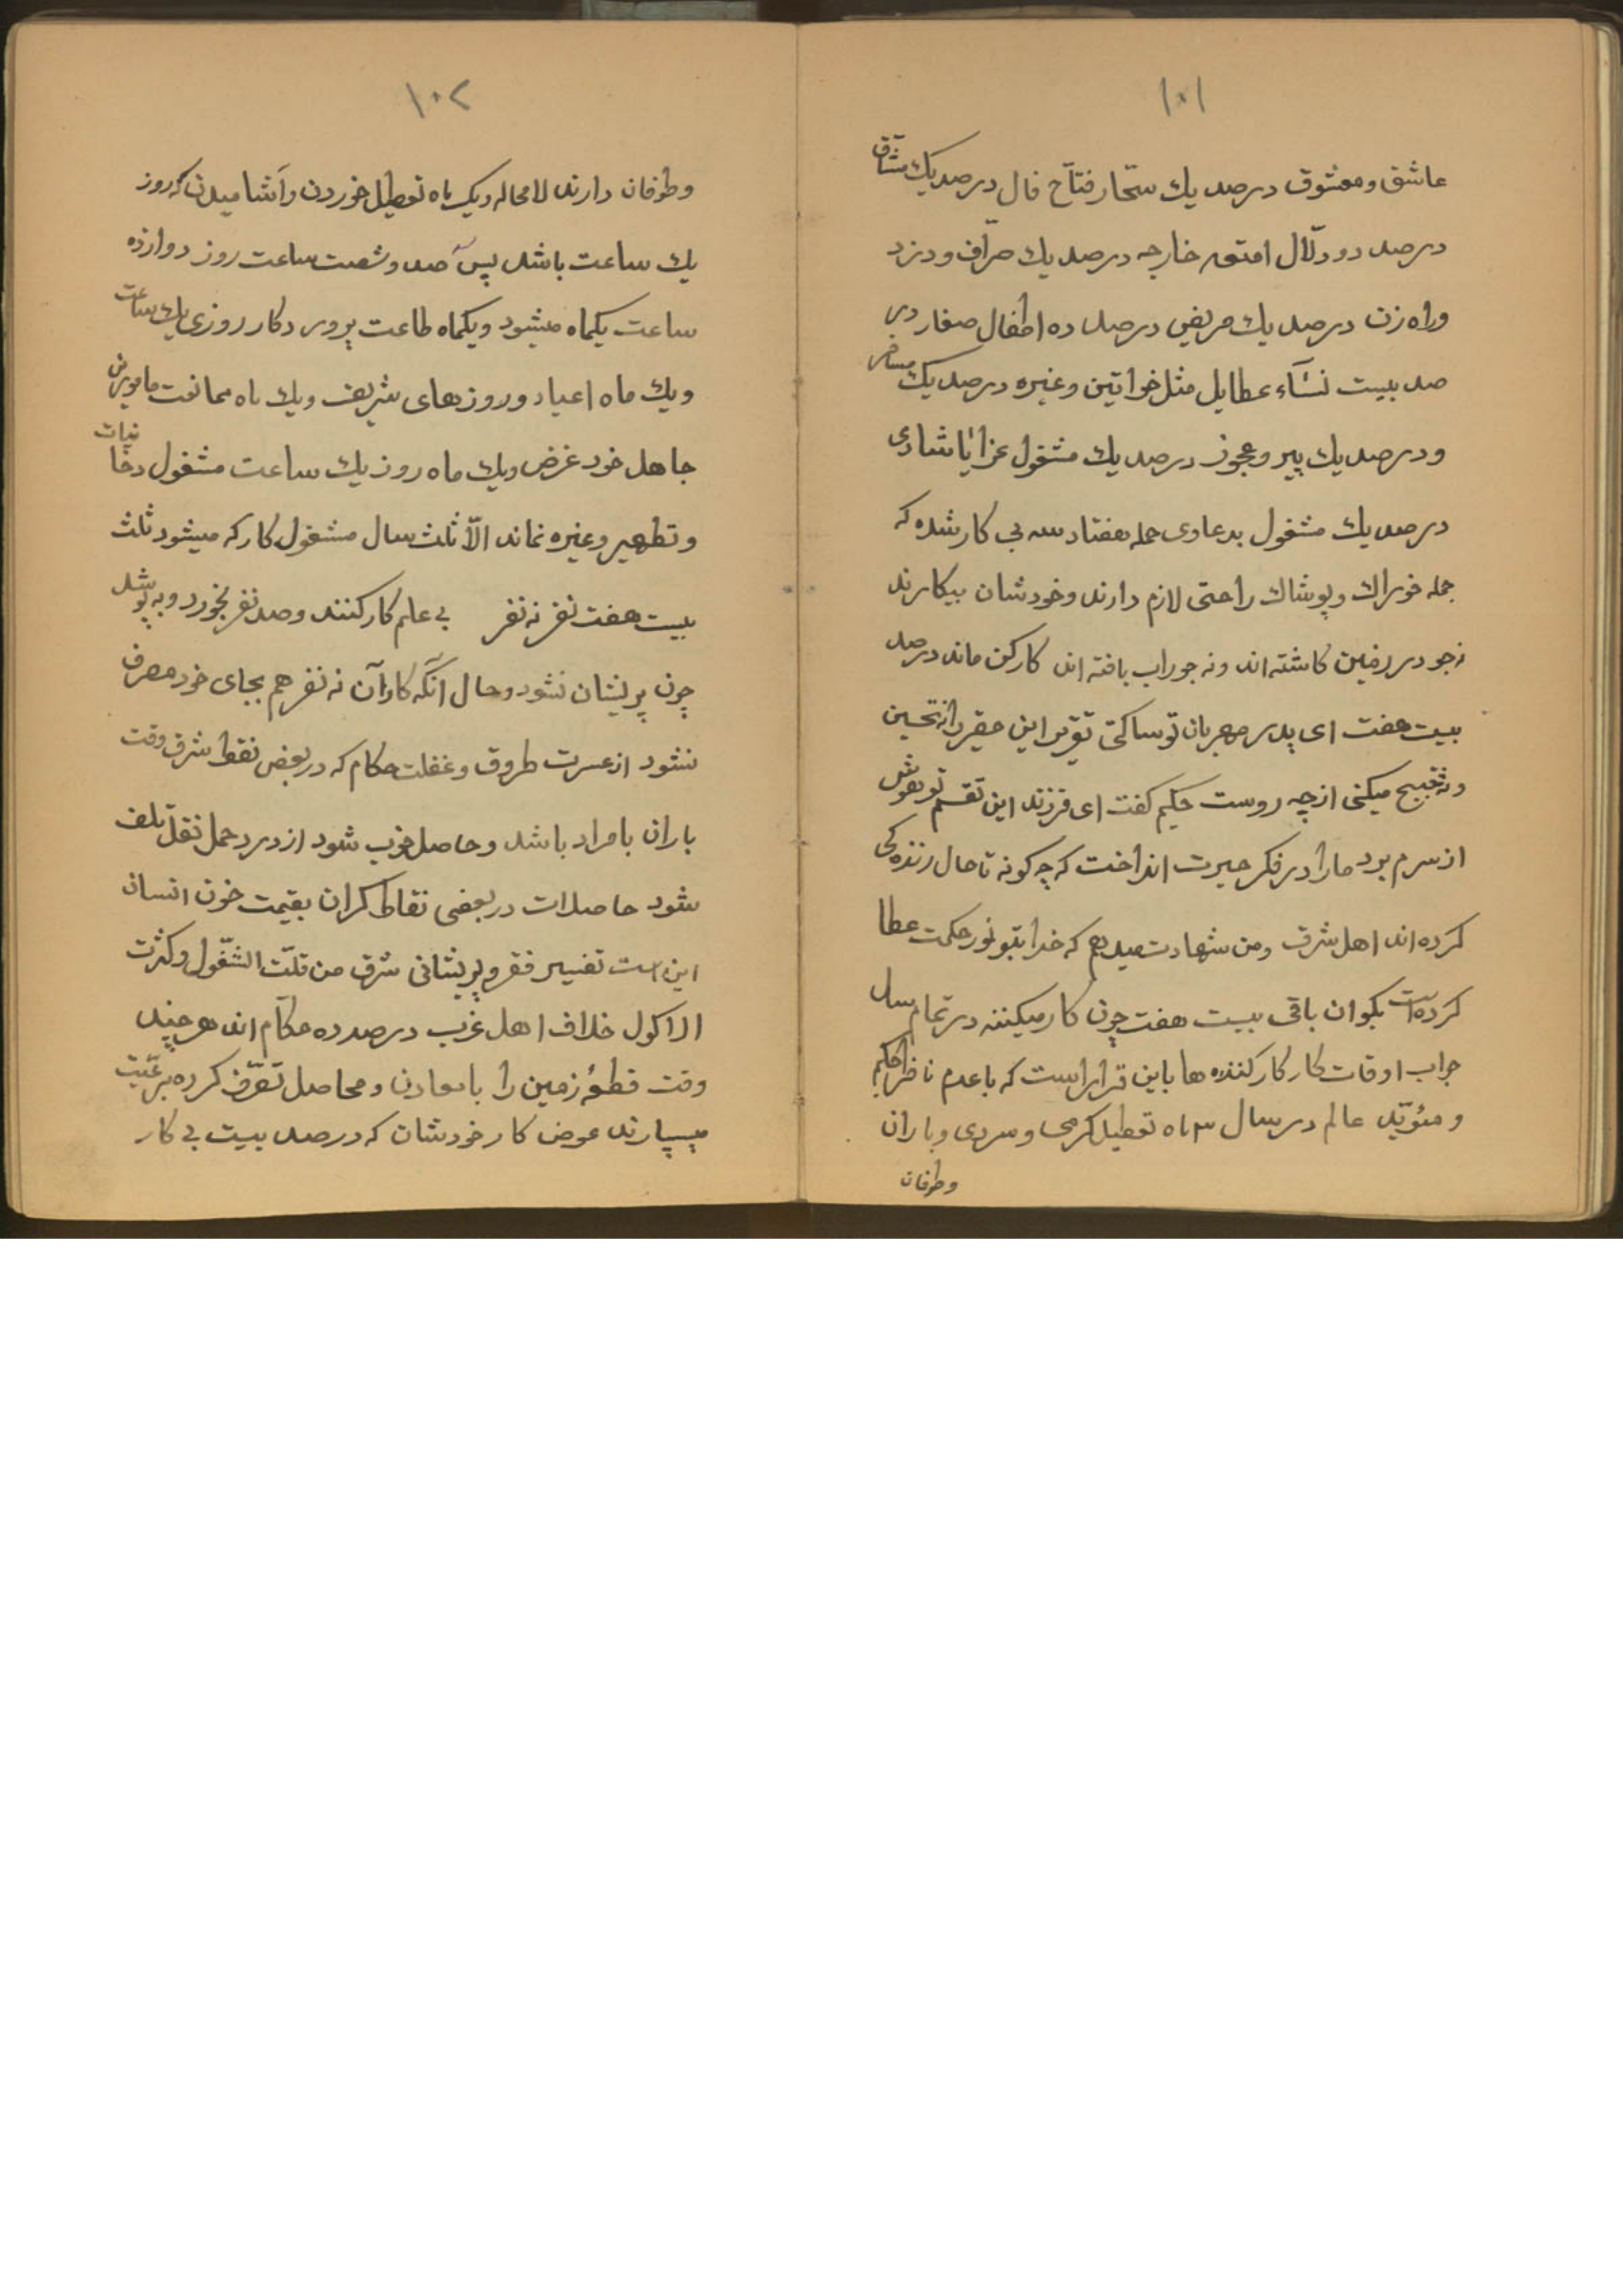 ۱۰۱
عاشق و معشوق درصد یك سحّار فتّاح فال درصد یك مشّاق
درصد دو دلّال امتعه خارجه درصد یك صرّاف و دزد
و راه زن درصد یك مریض درصد ده اطفال صغار در
صد بیست نسآء عطایل مثل خواتین وغیره درصد یك مسافر
و درصد یك پیر و عجوز درصد یك مشغول عزا یا شادی
درصد یك مشغول بدعاوی جمله هفتاد سه بی کار شده که
جمله خوراك و پوشاك راحتی لازم دارند و خودشان بیکارند
نه جو در زمین کاشته اند و نه جوراب بافته اند کارکن ماند درصد
بیست هفت ای پدر مهربان تو ساکتی تقریر این حقیر را نه تحسین
و نه تقبیح میکنی از چه روست حکیم کفت ای فرزند این تقسیم تو هوش
از سرم برد مارا در فکر حیرت انداخت که چه کونه تا حال زنده کی
کرده اند اهل شرق و من شهادت میدهم که خدا بتو نور حکمت عطا
کرده است بکو ان باقی بیست هفت چون کار میکینند در تمام سال
جواب اوقات کار کارکننده ها باین قرار است که با عدم ناظر حکیم
و مئویّد عالم در سال ۳ ماه تعطیل کرمی و سردی و باران
وطوفان
۱۰۲
وطوفان دارند لامحاله و یك ماه تعطیل خوردن و آشامیدن که روز
یك ساعت باشد پس صد و شصت ساعت روز دوازده
ساعت یکماه میشود و یکماه طاعت پرور دکار روزی یك ساعت
و یك ماه اعیاد و روزهای شریف و یك ماه ممانعت مامورین
جاهل خود غرض و یك ماه روز یك ساعت مشغول دخانیات
و تطهیر وغیره نماند الّا ثلث سال مشغول کار که میشود ثلث
بیست هفت نفر نه نفر بی علم کار کنند و صد نفر بخورد و به پوشد
چون پریشان نشود و حال آنکه کار آن نه نفر هم بجای خود مصرف
نشود از عسرت طروق و غفلت حکام که در بعض نقط شرق وقت
باران بامراد باشد و حاصل خوب شود از درد حمل نقل تلف
شود حاصلات در بعضی نقاط کران بقیمت خون انسان
این است تفسیر فقر و پریشانی شرق من قلّت الشّغول و کثرت
الاکول خلاف اهل غرب درصد ده حکّام اند هر چند
وقت قطعهٔ زمین را با معادن و محاصل تصرّف کرده برعّیت
میسپارند عوض کار خودشان که درصد بیست بی کار